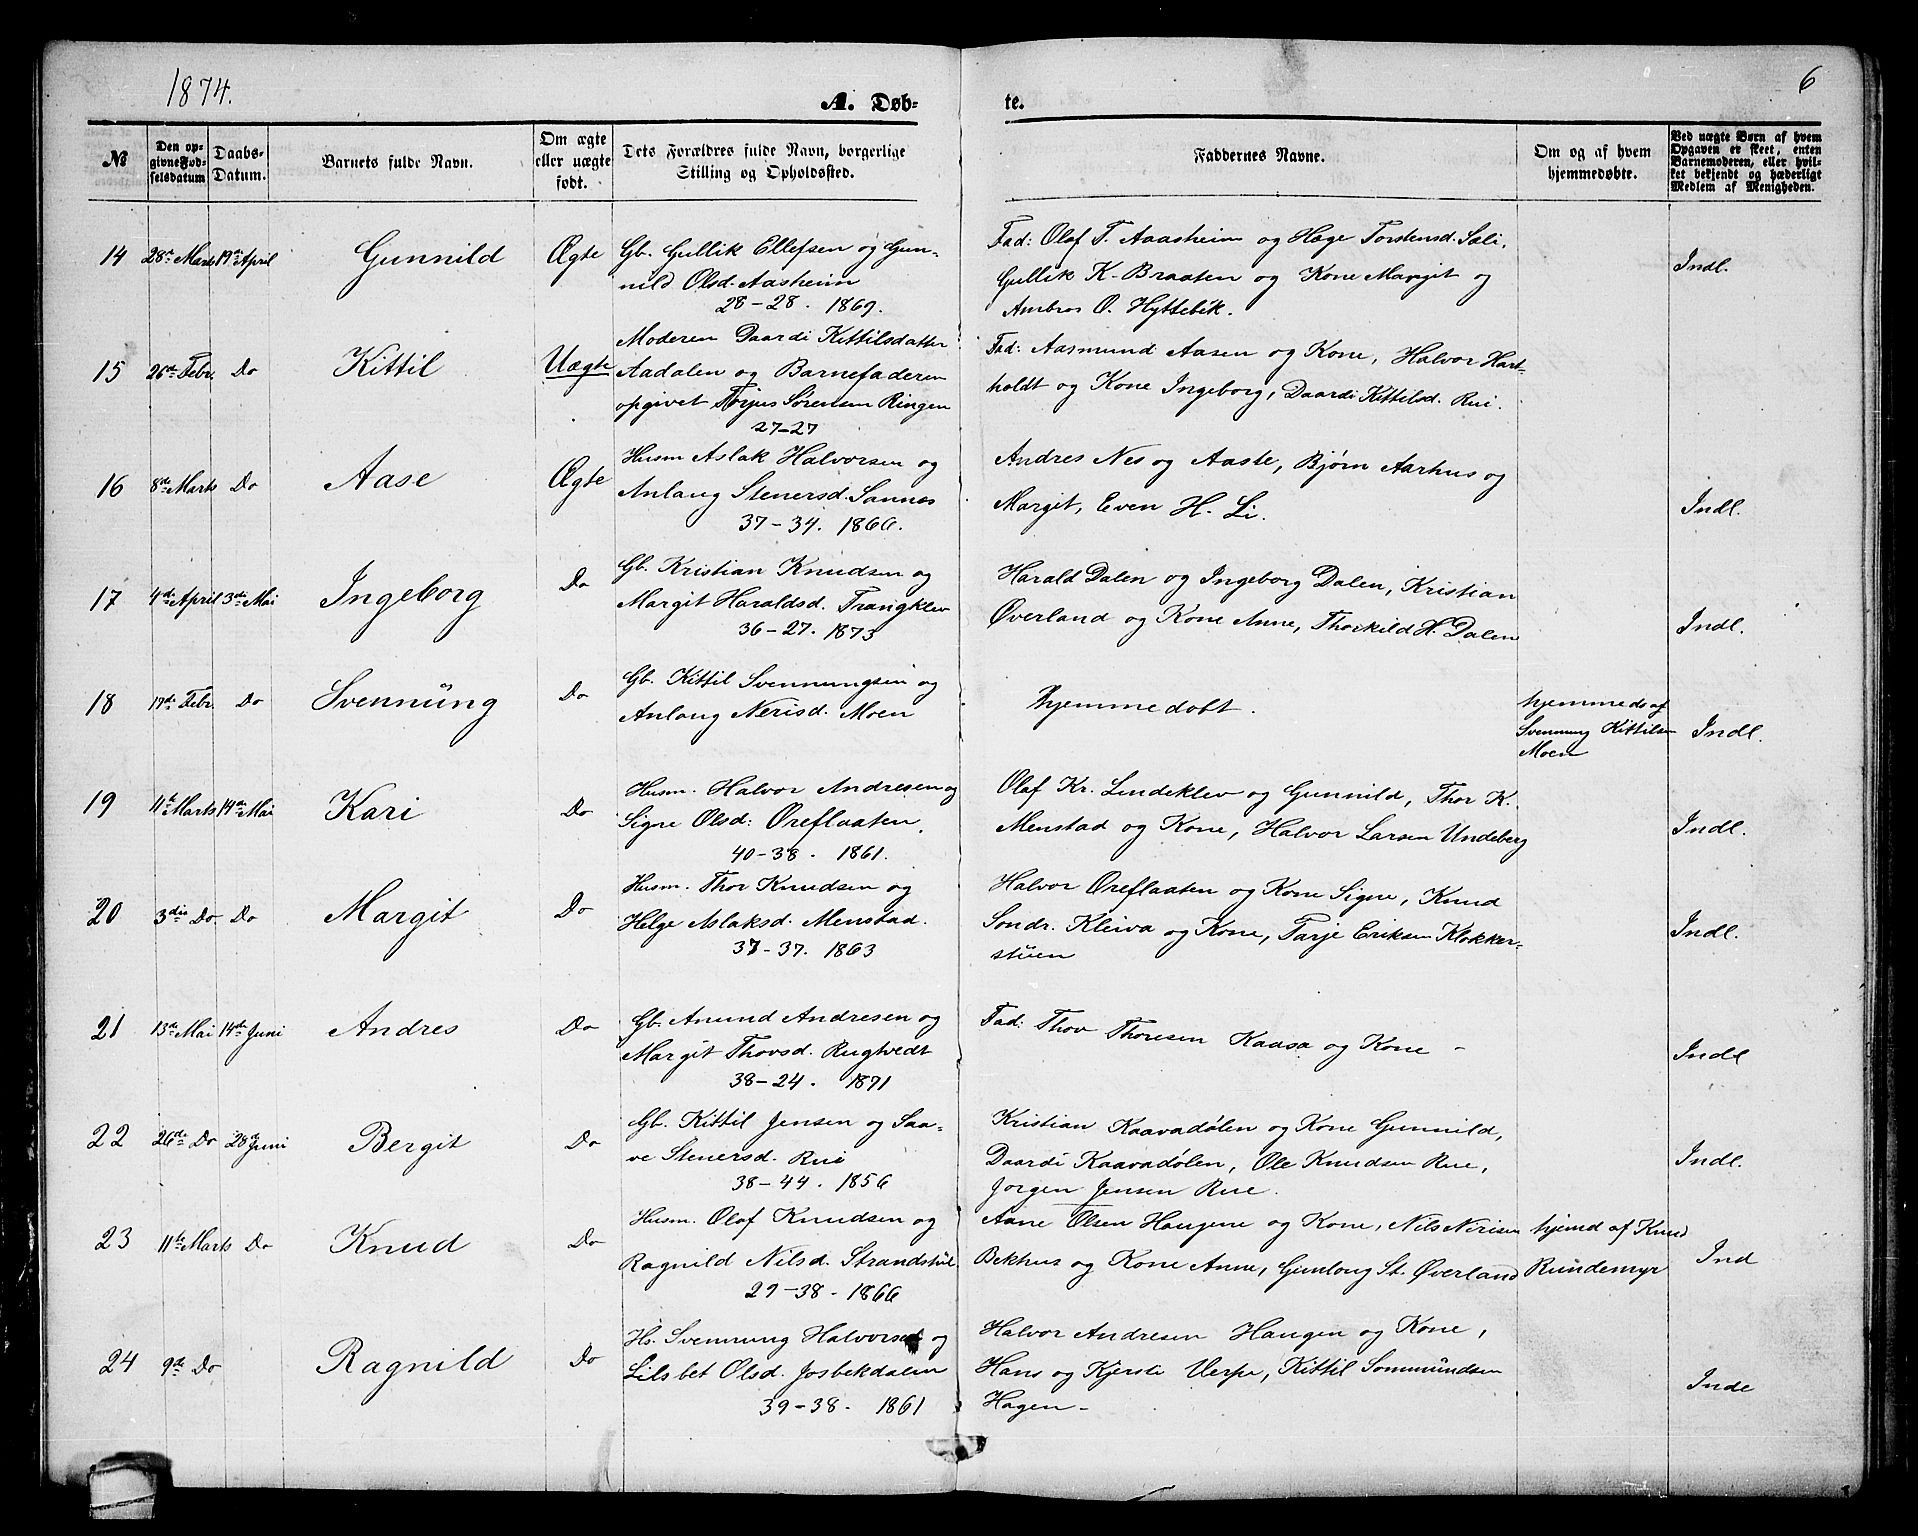 1874.
A. Døb-
te.
6
№
Den op-
givne Fød-
selsdatum
Daabs-
Datum.
Barnets fulde Navn.
Om ægte
eller uægte
født.
Dets Forældres fulde Navn, borgerlige
Stilling og Opholdssted.
Faddernes Navne.
Om og af hvem
hjemmedøbte.
Ved uægte Børn af hvem
Opgaven er skeet, enten
Barnemoderen, eller hvil-
ket bekjendt og hæderligt
Medlem af Menigheden.
14 28de Marts 19de April Gunnild Ægte
Gb. Gullik Ellefsen og Gun-
nild Olsd. Aasheim
28-28. 1869.
Fad: Olaf T. Aaasheim og Hæge Torstensd. Sæli,
Gullik K. Braaten og Kone Margit og
Ambros O. Hyttebik.
Indl.
15 26de Febr. Do Kittil Uægte
Moderen Daardi Kittilsdatter
Aadalen og Barnefaderen
opgivet Torjus Sørensen Ringen
27-27
Fad: Aasmund Aasen og Kone, Halvor Hart-
holdt og Kone Ingeborg, Daardi Kittilsd. Rui.
16 8de Marts Do Aase Ægte
Husm Aslak Halvorsen og
Anlaug Stenersd. Sannes
37-34. 1866.
Andres Nes og Aaste, Bjørn Aarhus og
Margit, Even H. Li.
Indl.
17 4de April 3de Mai Ingeborg Do
Gb. Kristian Knudsen og
Margit Haraldsd. Trangklev
36-27. 1873
Harald Dalen og Ingeborg Dalen, Kristian
Øverland og Kone Anne, Thorkild H. Dalen
Indl.
18 17de Febr. Do Svennŭng Do
Gb. Kittil Svennungsen og
Anlaug Nerisd. Moen
Hjemmedøbt.
hjemmed. af
Svennung Kittilsen
Moen
Indl.
19 4de Marts 14de Mai Kari Do
Husm. Halvor Andresen og
Signe Olsd: Øreflaaten,
40-38. 1861.
Olaf Kr. Lindeklev og Gunnild, Thor K.
Menstad og Kone, Halvor Larsen Undeberg
Indl.
20 3die Do Do Margit Do
Husm. Thor Knudsen og
Helge Aslaksd. Menstad.
37-37. 1863
Halvor Øreflaaten og Kone Signe, Knud
Sondr. Kleiva og Kone, Tarje Eriksen Klokker-
stŭen
Indl.
21 13de Mai 14de Juni Andres Do
Gb. Anund Andresen og
Margit Thovsd. Rugtvedt
38-24. 1871
Fad: Thov Thoresen Kaasa og Kone -
Indl
22 26de Do 28de Juni Bergit Do
Gb. Kittil Jensen og Saa-
ve Stenersd. Rui
38-44. 1856
Kristian Kaavadølen og Kone Gunnild,
Daardi Kaavadølen, Ole Knudsen Rue,
Jørgen Jensen Rue.
Indl.
23 11te Marts Do Knud Do
Husm. Olaf Knudsen og
Ragnild Nilsd. Strandstŭl
29-38. 1866
Aane Olsen Haugene og Kone, Nils Nirisen
Bekhus og Kone Anne, Gunlaug St. Øverland
hjemd af Knud
Rŭndemyr
Ind
24 9de Do Ragnild Do
Hs. Svennung Halvorsen og
Lilsbet Olsd. Josbekdalen
39-38. 1861
Halvor Andresen Haugen og Kone,
Hans og Kjersti Verpe, Kittil Sommŭndsen
Hagen-
Inde